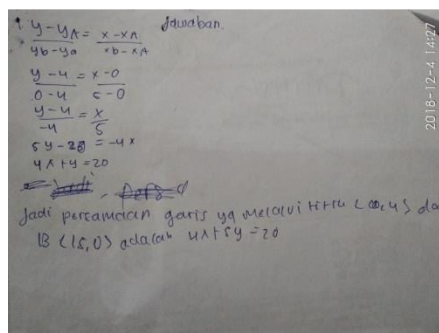 Jawaban.
y-yA = x-xA
yb-ya xb-xA
y-4 = x-0
0-4 5-0
y-4 = x
-4 5
5y-20 = -4x
4x+y=20
Jadi persamaan garis yg melalui titik (0,4) da
B (5,0) adalah 4x+5y=20
2018-12-4 14:27